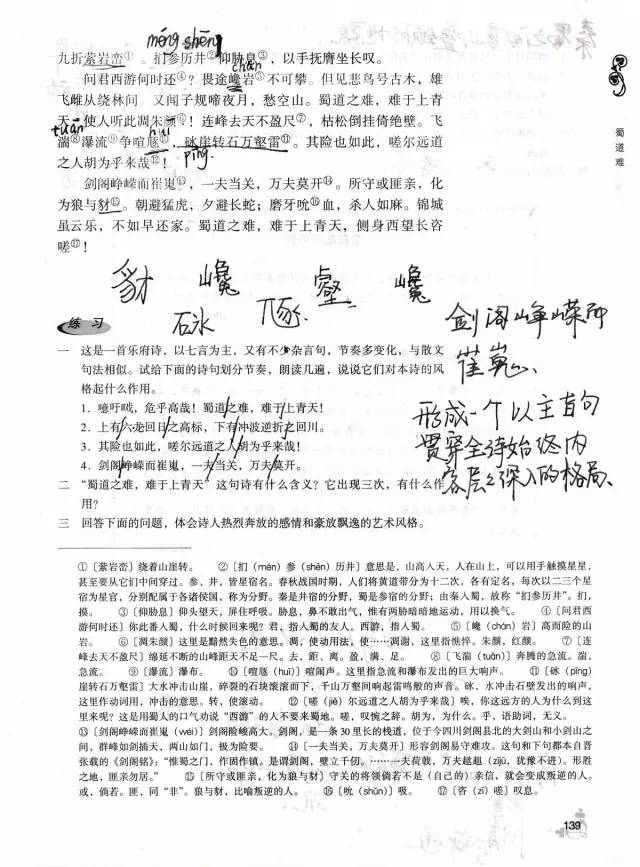 蜀道难
méng shēng
九折萦岩峦①。扪参历井②仰胁息③，以手抚膺坐长叹。
chán
问君西游何时还④？畏途巉岩⑤不可攀。但见悲鸟号古木，雄
飞雌从绕林间。又闻子规啼夜月，愁空山。蜀道之难，难于上青
天，使人听此凋朱颜⑥！连峰去天不盈尺⑦，枯松倒挂倚绝壁。飞
tuān
huī
湍⑧瀑流⑨争喧豗⑩，砯崖转石万壑雷⑪。其险也如此，嗟尔远道
pīng
之人胡为乎来哉⑫！
剑阁峥嵘而崔嵬⑬，一夫当关，万夫莫开⑭。所守或匪亲，化
为狼与豺⑮。朝避猛虎，夕避长蛇；磨牙吮⑯血，杀人如麻。锦城
虽云乐，不如早还家。蜀道之难，难于上青天，侧身西望长咨
嗟⑰！
豺 巉 壑 巉
砯 豗
剑阁峥嵘而
崔嵬、
形成一个以主旨句
贯穿全诗始终内
容层层深入的格局、
练习
一 这是一首乐府诗，以七言为主，又有不少杂言句，节奏多变化，与散文
句法相似。试给下面的诗句划分节奏，朗读几遍，说说它们对本诗的风
格起什么作用。
1．噫吁嚱，危乎高哉！蜀道之难，难于上青天！
2．上有六龙回日之高标，下有冲波逆折之回川。
3．其险也如此，嗟尔远道之人胡为乎来哉！
4．剑阁峥嵘而崔嵬，一夫当关，万夫莫开。
二 “蜀道之难，难于上青天”这句诗有什么含义？它出现三次，有什么作
用？
三 回答下面的问题，体会诗人热烈奔放的感情和豪放飘逸的艺术风格。
①〔萦岩峦〕绕着山崖转。 ②〔扪（mén）参（shēn）历井〕意思是，山高入天，人在山上，可以用手触摸星星，
甚至要从它们中间穿过。参、井，皆星宿名。春秋战国时期，人们将黄道带分为十二次，各有定名，每次以二三个星
宿为星官，分别配属于各诸侯国，称为分野。秦是井宿的分野，蜀是参宿的分野；由秦入蜀，故称“扪参历井”。扪，
摸。 ③〔仰胁息〕仰头望天，屏住呼吸。胁息，鼻不敢出气，惟有两胁暗暗地运动，用以换气。 ④〔问君西
游何时还〕你此番入蜀，什么时候回来呢？君，指入蜀的友人。西游，指入蜀。 ⑤〔巉（chán）岩〕高而险的山
岩。 ⑥〔凋朱颜〕这里是黯然失色的意思。凋，使动用法，使……凋谢，这里指憔悴。朱颜，红颜。 ⑦〔连
峰去天不盈尺〕绵延不断的山峰距天不足一尺。去，距，离。盈，满、足。 ⑧〔飞湍（tuān）〕奔腾的急流。湍，
急流。 ⑨〔瀑流〕瀑布。 ⑩〔喧豗（huī）〕喧闹声。这里指急流和瀑布发出的巨大响声。 ⑪〔砯（pīng）
崖转石万壑雷〕大水冲击山崖，碎裂的石块滚滚而下，千山万壑间响起雷鸣般的声音。砯，水冲击石壁发出的响声，
这里作动词用，冲击的意思。转，使滚动。 ⑫〔嗟（jiē）尔远道之人胡为乎来哉〕唉，你这远方的人为什么到这
里来呢？这是用蜀人的口气劝说“西游”的人不要来蜀地。嗟，叹惋之辞。胡为，为什么。乎，语助词，无义。
⑬〔剑阁峥嵘而崔嵬（wéi）〕剑阁险峻高大。剑阁，是一条30里长的栈道，位于今四川剑阁县北的大剑山和小剑山之
间，群峰如剑插天，两山如门，极为险要。 ⑭〔一夫当关，万夫莫开〕形容剑阁易守难攻。这句和下句都本自晋
张载的《剑阁铭》：“惟蜀之门，作固作镇。是谓剑阁，壁立千仞。……一夫荷戟，万夫趑趄（zījū，犹豫不进）。形胜
之地，匪亲勿居。” ⑮〔所守或匪亲，化为狼与豺〕守关的将领倘若不是（自己的）亲信，就会变成叛逆的人。
或，倘若。匪，同“非”。狼与豺，比喻叛逆的人。 ⑯〔吮（shǔn）〕吸。 ⑰〔咨（zī）嗟〕叹息。
139